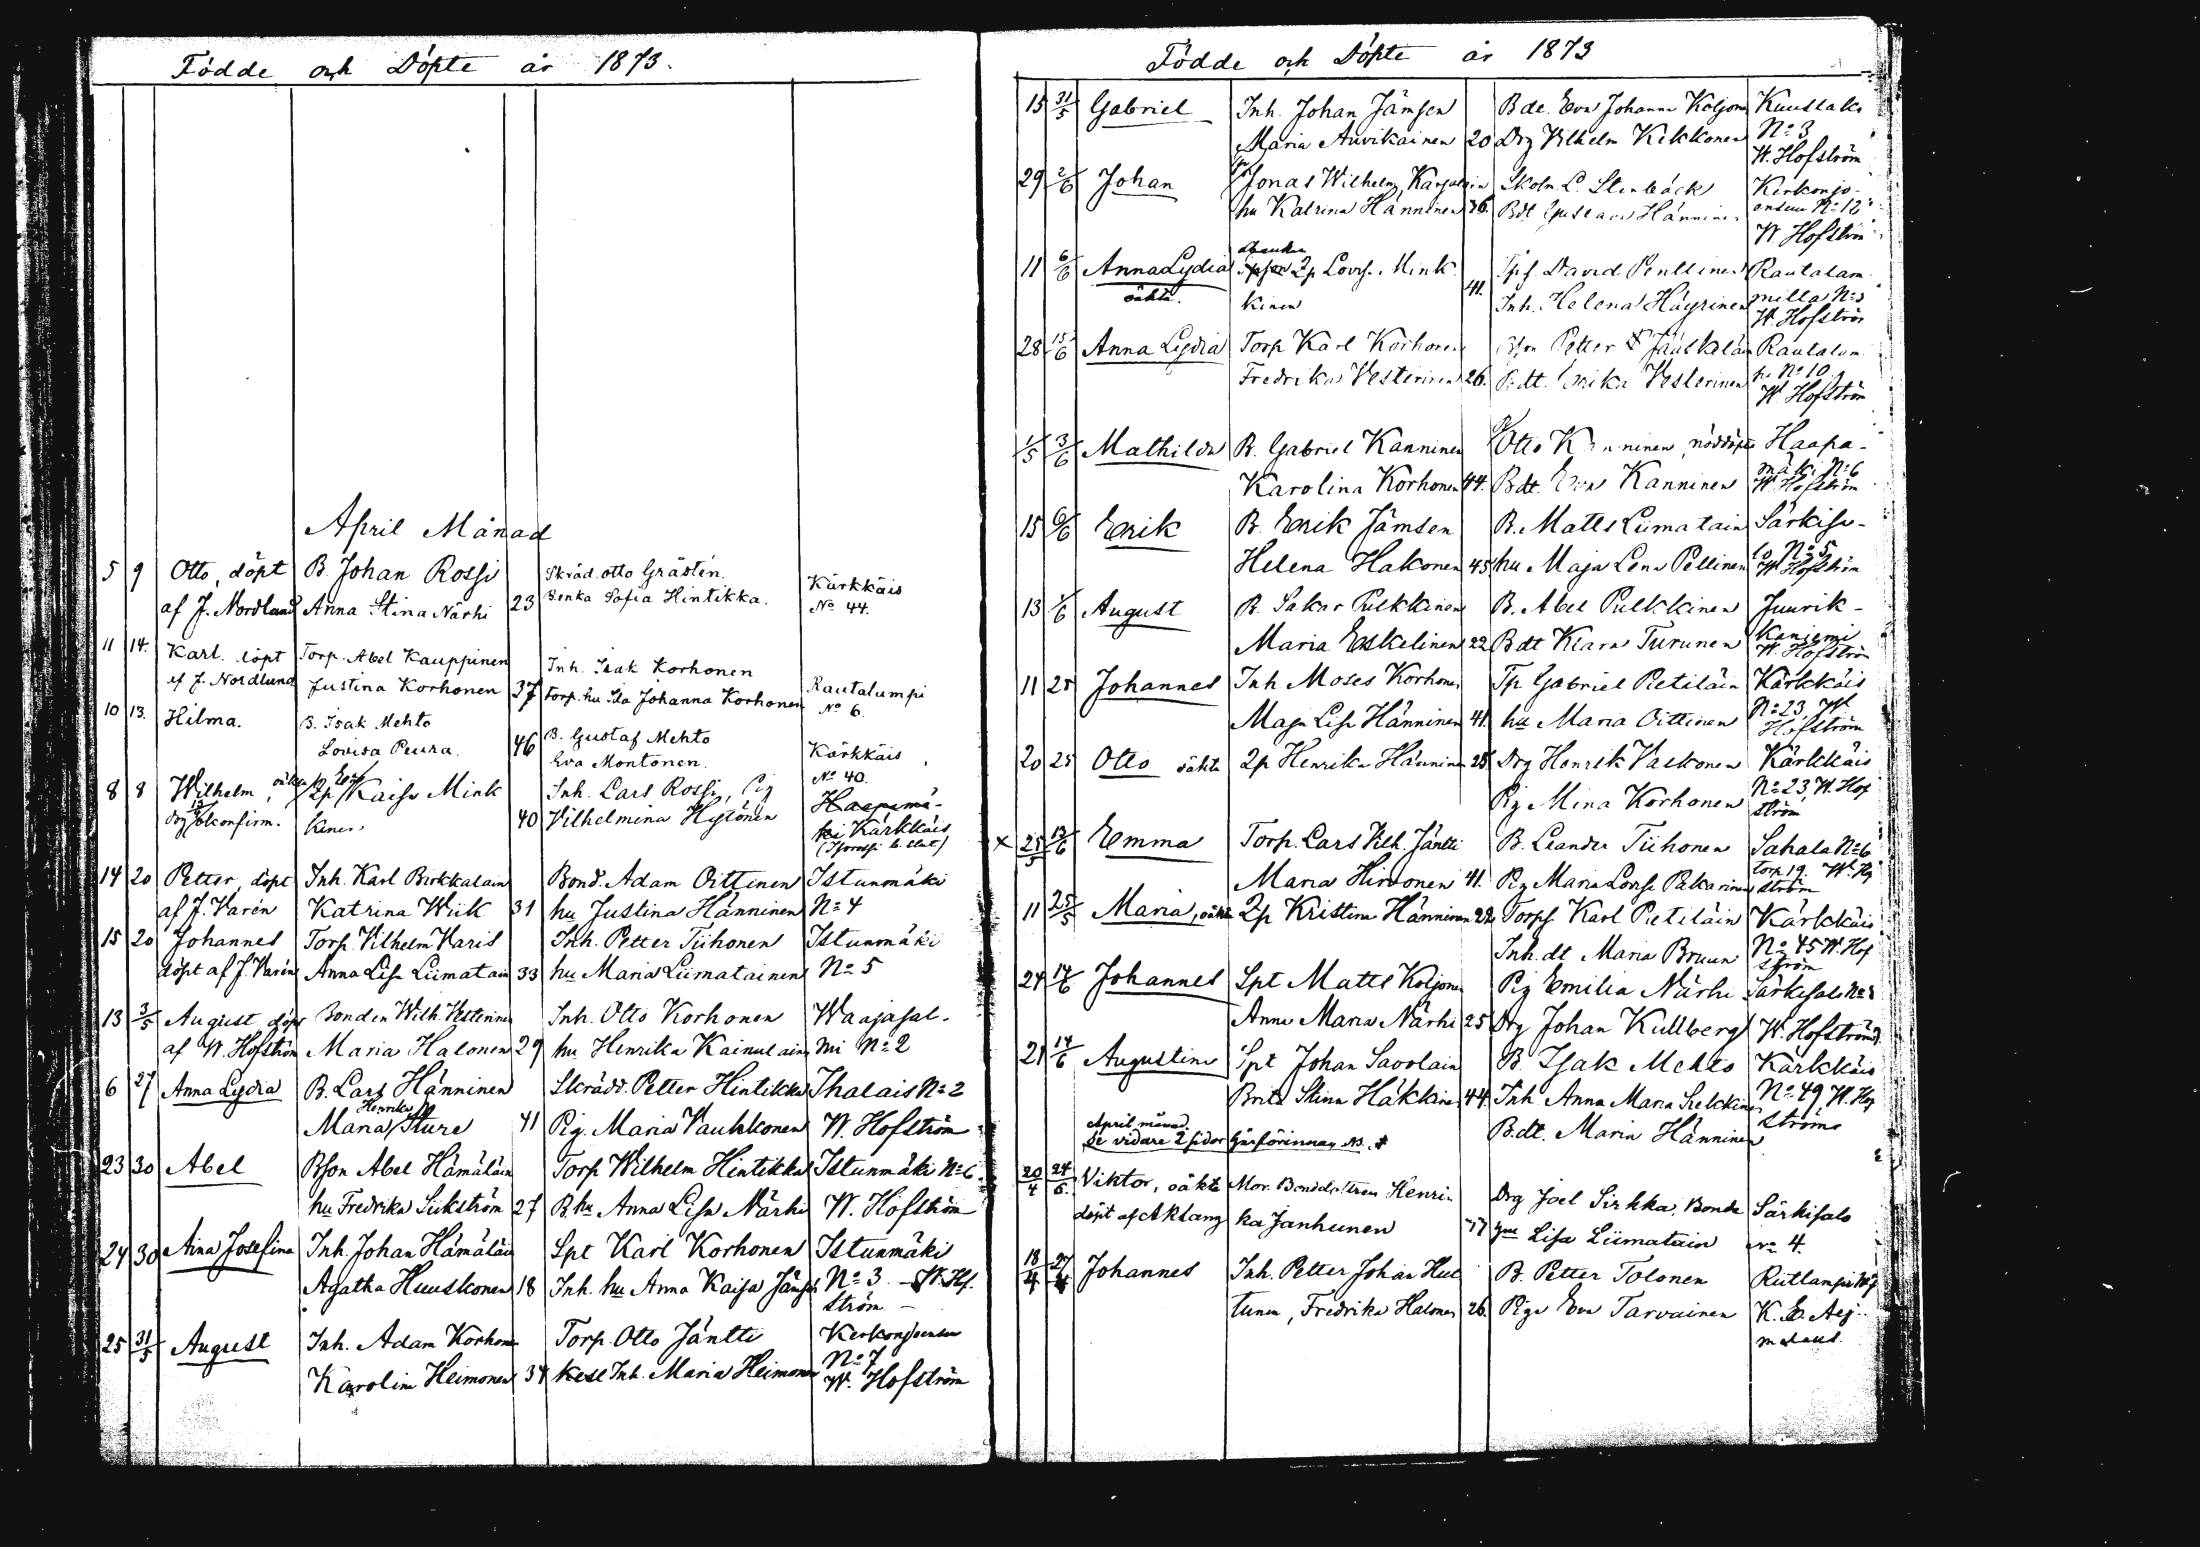 Födde och Döpte år 1873.
April Månad
5 9 Otto, döpt B. Johan Rossi Skräd. Otto Grästén. Kärkkäis
af J. Nordlund Anna Stina Närhi 23 Benka Sofia Hintikka. No 44.
11 14. Karl. döpt Torp. Abel Kauppinen Inh. Isak Korhonen
af J. Nordlund Justina Korhonen 37 Torp. hu Ida Johanna Korhonen Rautalampi No 6.
10 13. Hilma. B. Isak Mehto B. Gustaf Mehto
Lovisa Peura. 46 Eva Montonen. Kärkkäis No 40.
8 8 Wilhelm, oäkta Kaisa Mink Inh. Lars Rossi, Pig Haapamä-
kinen 40 Vilhelmina Hytönen ki Kärkkäis
14 20 Petter, döpt Inh. Karl Birkkalain Bond. Adam Oittinen Istunmäki
af J. Varén Katrina Wiik 31 hu Justina Hänninen No 4
15 20 Johannes Torp. Vilhelm Karis Inh. Petter Tiihonen Istunmäki
döpt af J. Varén Anna Lisa Liimatain 33 hu Maria Liimatainen No 5
13 3/5 August döpt Bonden Wilh. Vesterinen Inh. Otto Korhonen Waajasal-
af W. Hofström Maria Halonen 29 hu Henrika Kainulain mi No 2
6 27 Anna Lydia B. Lars Hänninen Skrädd. Petter Hintikka Ihalais No 2
Maria Henrika Sture 41 Pig. Maria Vauhkonen W. Hofström
23 30 Abel Bson Abel Hämäläin Torp Wilhelm Hintikka Istunmäki No 6
hu Fredrika Sikström 27 B. hu Anna Lisa Närhi W. Hofström
24 30 Aina Josefina Inh. Johan Hämäläin Spt Karl Korhonen Istunmäki
Agatha Huuskonen 18 Inh. hu Anna Kaisa Jämsen No 3 W. Hof-
ström
25 31/5 August Inh. Adam Korhonen Torp. Otto Jäntti Kerkonjoensuu
Karolina Heimonen 34 Inh. Maria Heimonen No 7
W. Hofström
Födde och Döpte år 1873
15 31/5 Gabriel Inh. Johan Jämsen Bdt. Eva Johanna Koljonen Kuusla
Maria Auvikainen 20 Drg Vilhelm Kekkonen No 3
W. Hofström
29 2/6 Johan Jonas Wilhelm Karjalain Skoln. L. Stenbäck Kerkonjo-
hu Katrina Hänninen 36. Bdt Gustava Hänninen ensuu No 12
W Hofström
11 6/6 Anna Lydia Lovisa Mink- Tpf David Penttinen Rautalam-
oäkta. kinen 41. Inh. Helena Häyrinen No 3
W. Hofström
28 15/6 Anna Lydia Torp Karl Korhonen Bson Petter Jääskeläin Rautalam-
Fredrika Vesterinen 26. Bdt. Erika Vesterinen pi No 10
W. Hofström
1/5 3/6 Mathilda B. Gabriel Kanninen Otto Kanninen, nöddöpt Haapa-
Karolina Korhonen 44. Bdt. Eva Kanninen mäki No 6
W. Hofström
15 6/6 Erik B. Erik Jämsen B. Matts Liimatain Särkisa-
Helena Hakonen 45 hu Maja Lena Pellinen lo No 5
W. Hofström
13 1/6 August B. Sakar Pulkkinen B. Abel Pulkkinen Juurik-
Maria Eskelinen 22 Bdt Klara Turunen kaniemi
W. Hofström
11 25 Johannes Inh Moses Korhonen Tp Gabriel Pietiläin Kärkkäis
Maja Lisa Hänninen 41. hu Maria Oittinen No 23 W.
Hofström
20 25 Otto oäkta 2p Henrika Hänninen 28 Drg Henrik Vaskonen Kärkkäis
Pig Mina Korhonen No 23 W. Hof
ström
x 25/5 13/6 Emma Torp. Lars Vilh. Jäntti B. Leander Tiihonen Sahala No 6
Maria Hirvonen 41. Pig Maria Lovisa Pakarinen torp 19. W. Hof
ström
11 25/5 Maria, oäkta 2p Kristina Hänninen 22 Torpf Karl Pietiläin Kärkkäis
Inh. dt Maria Bruun No 45 W. Hof
ström
24 14/6 Johannes Spt Matts Koljonen Pig Emilia Närhi Särkisalo
Anna Maria Närhi 25 Drg Johan Kullberg W. Hofström
21 14/6 Augustina Spt Johan Savolain B. Isak Mehto Kärkkäis
Brita Stina Häkkinen 44. Inh Anna Maria No 49 W. Hof
Bdt. Maria Hänninen ström
April månad.
Se vidare 2 sidor härförinnan NB.
20/4 24/5. Viktor, oäkta Mor. Bondedottren Henri- Drg Joel Sirkka, Bonde Särkisalo
döpt af Aklang ka Janhunen Lisa Liimatain No 4.
18/4 27/4 Johannes Inh. Petter Johan Hut B. Petter Tolonen
tunen, Fredrika Halonen 26. Piga Eva Tarvainen K. E. Aej-
melaeus.